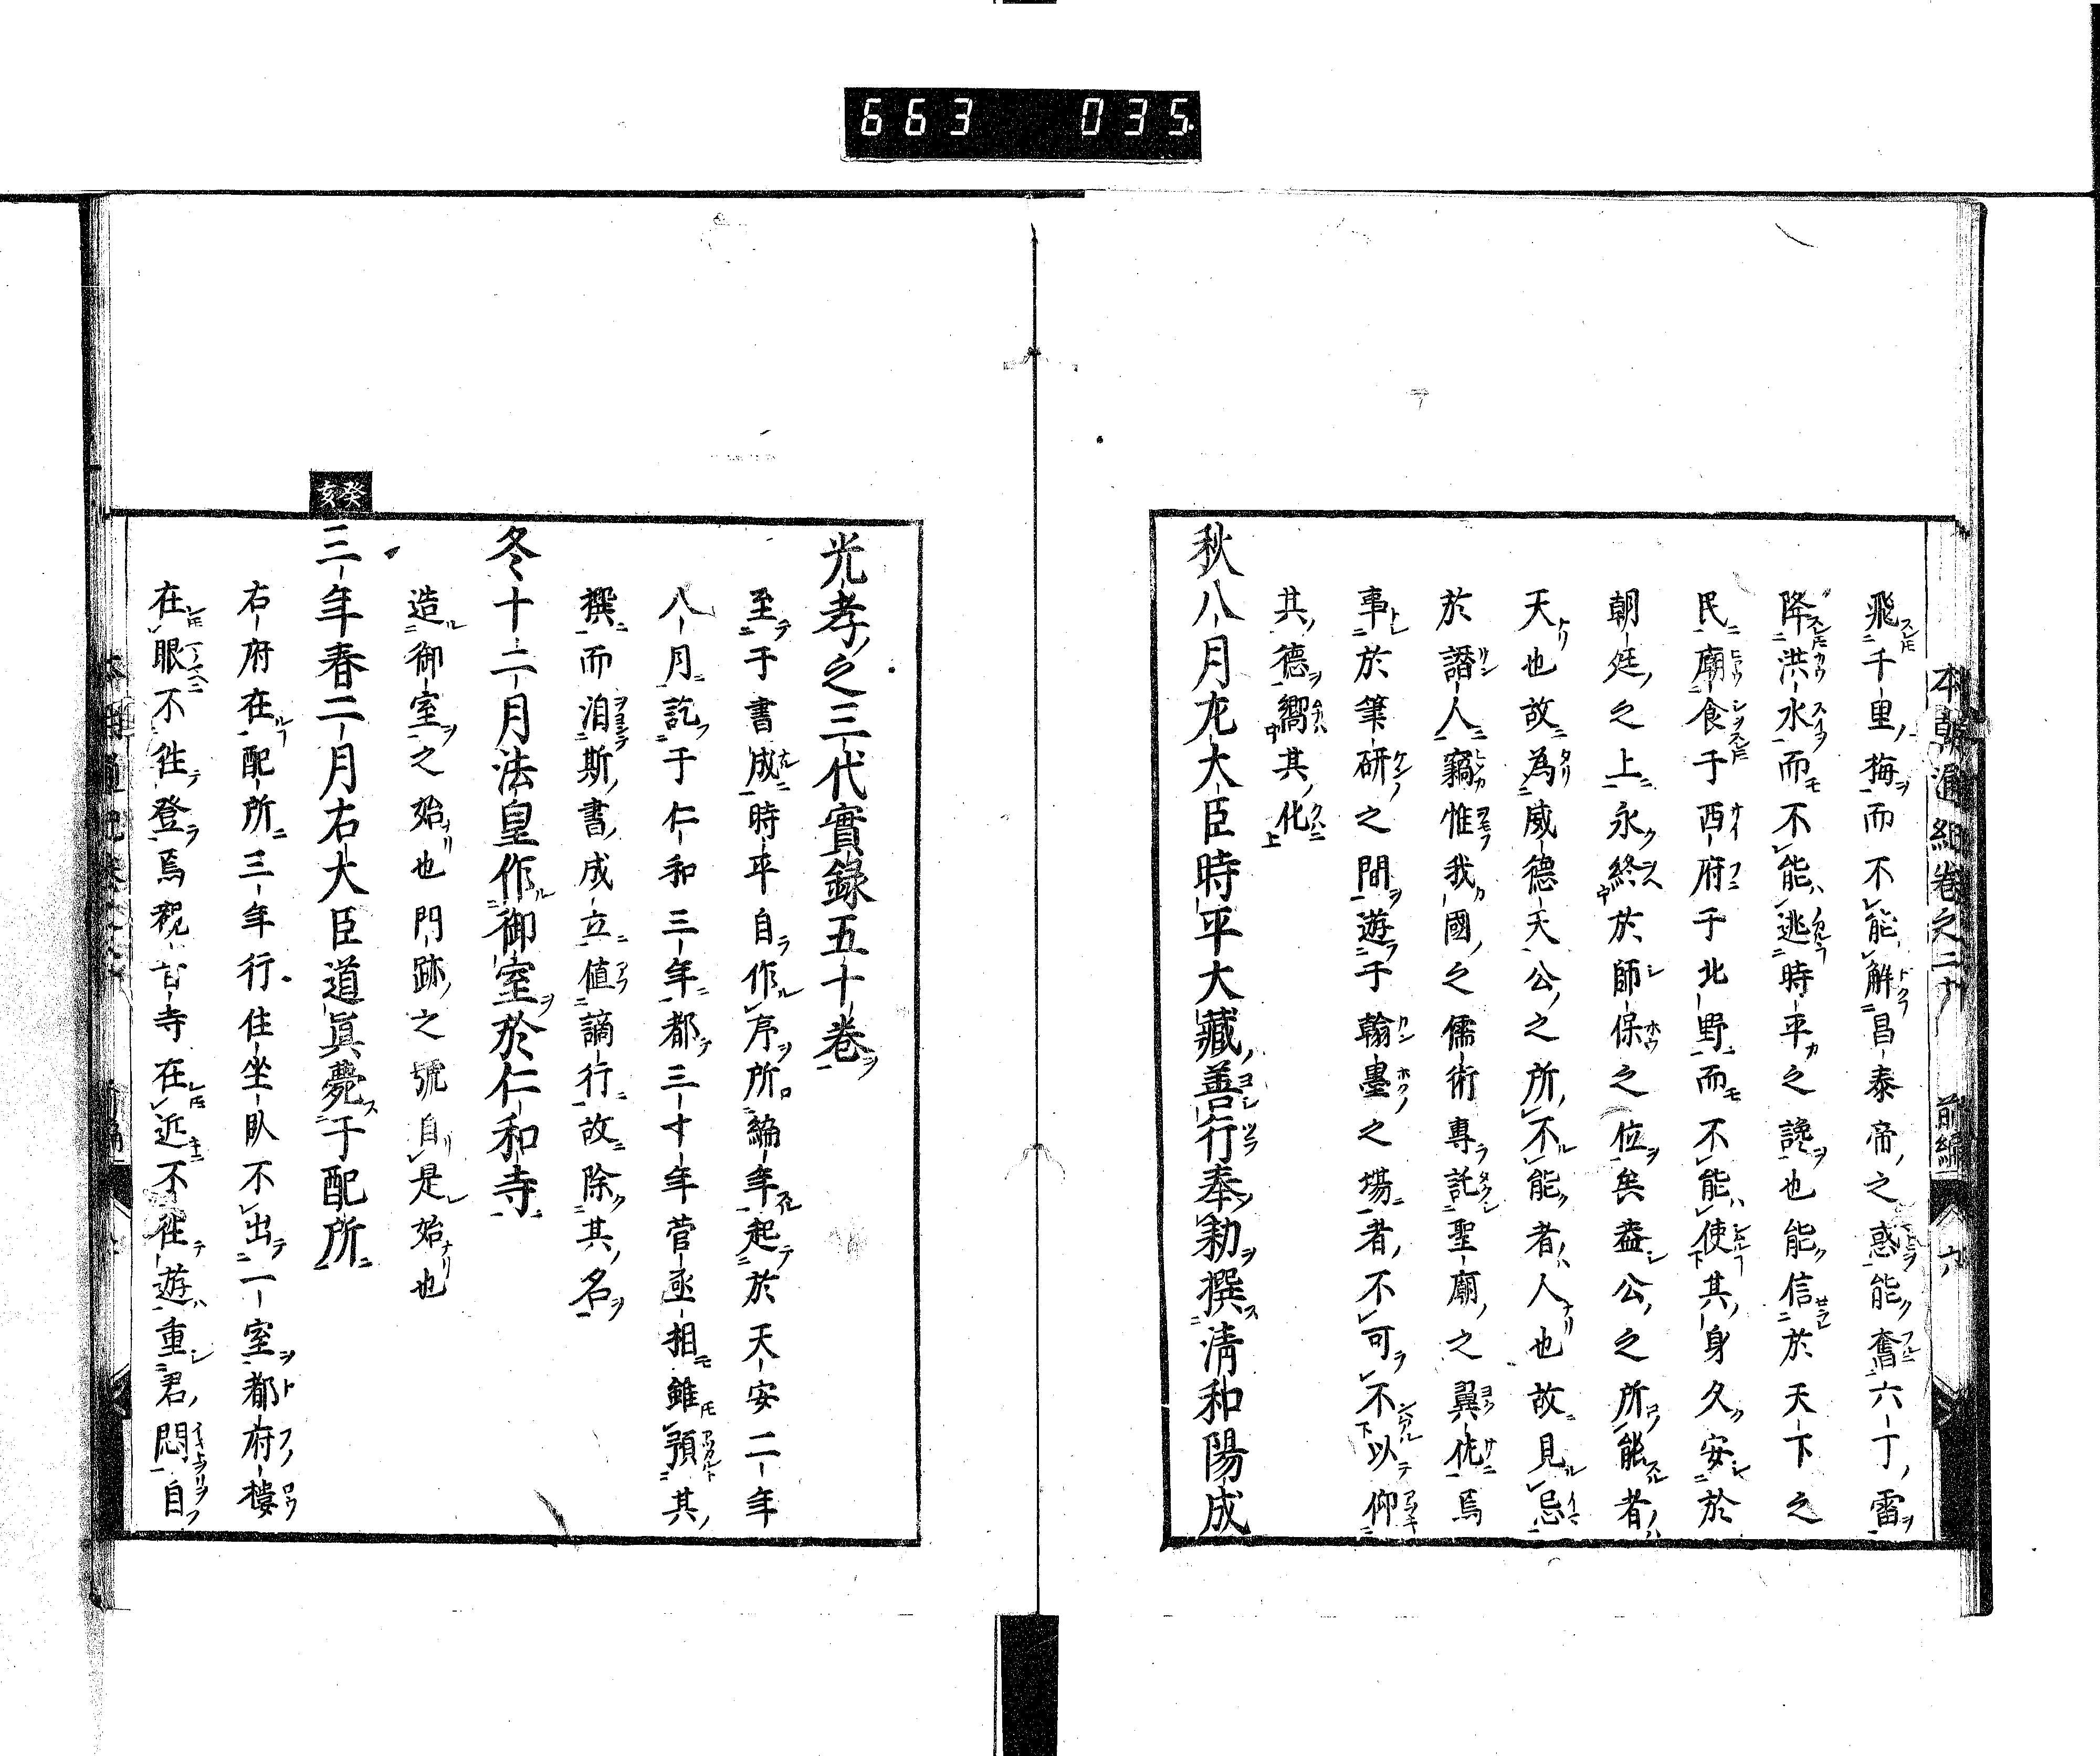 663 035
本朝通紀卷之二十 前編 六
飛千里梅而不能解昌泰帝之惑能奮六丁雷
降洪水而不能逃時平之讒也能信於天下之
民廟食于西府于北野而不能使其身久安於
朝廷之上永終於師保之位矣蓋公之所能者
天也故為威德天公之所不能者人也故見忌
於譖人竊惟我國之儒術專託聖廟之翼佐焉
事於筆研之間遊于翰墨之場者不可不以仰
其德嚮其化
秋八月左大臣時平大藏善行奉勅撰淸和陽成
光孝之三代實錄五十卷
至于書成時平自作序所編年起於天安二年
八月訖于仁和三年都三十年菅丞相雖預其
撰而洎斯書成立値謫行故除其名
冬十二月法皇作御室於仁和寺
造御室之始也門跡之號自是始也
癸亥
三年春二月右大臣道眞薨于配所
右府在配所三年行住坐臥不出一室都府樓
在眼不往登焉觀音寺在近不往遊重君悶自